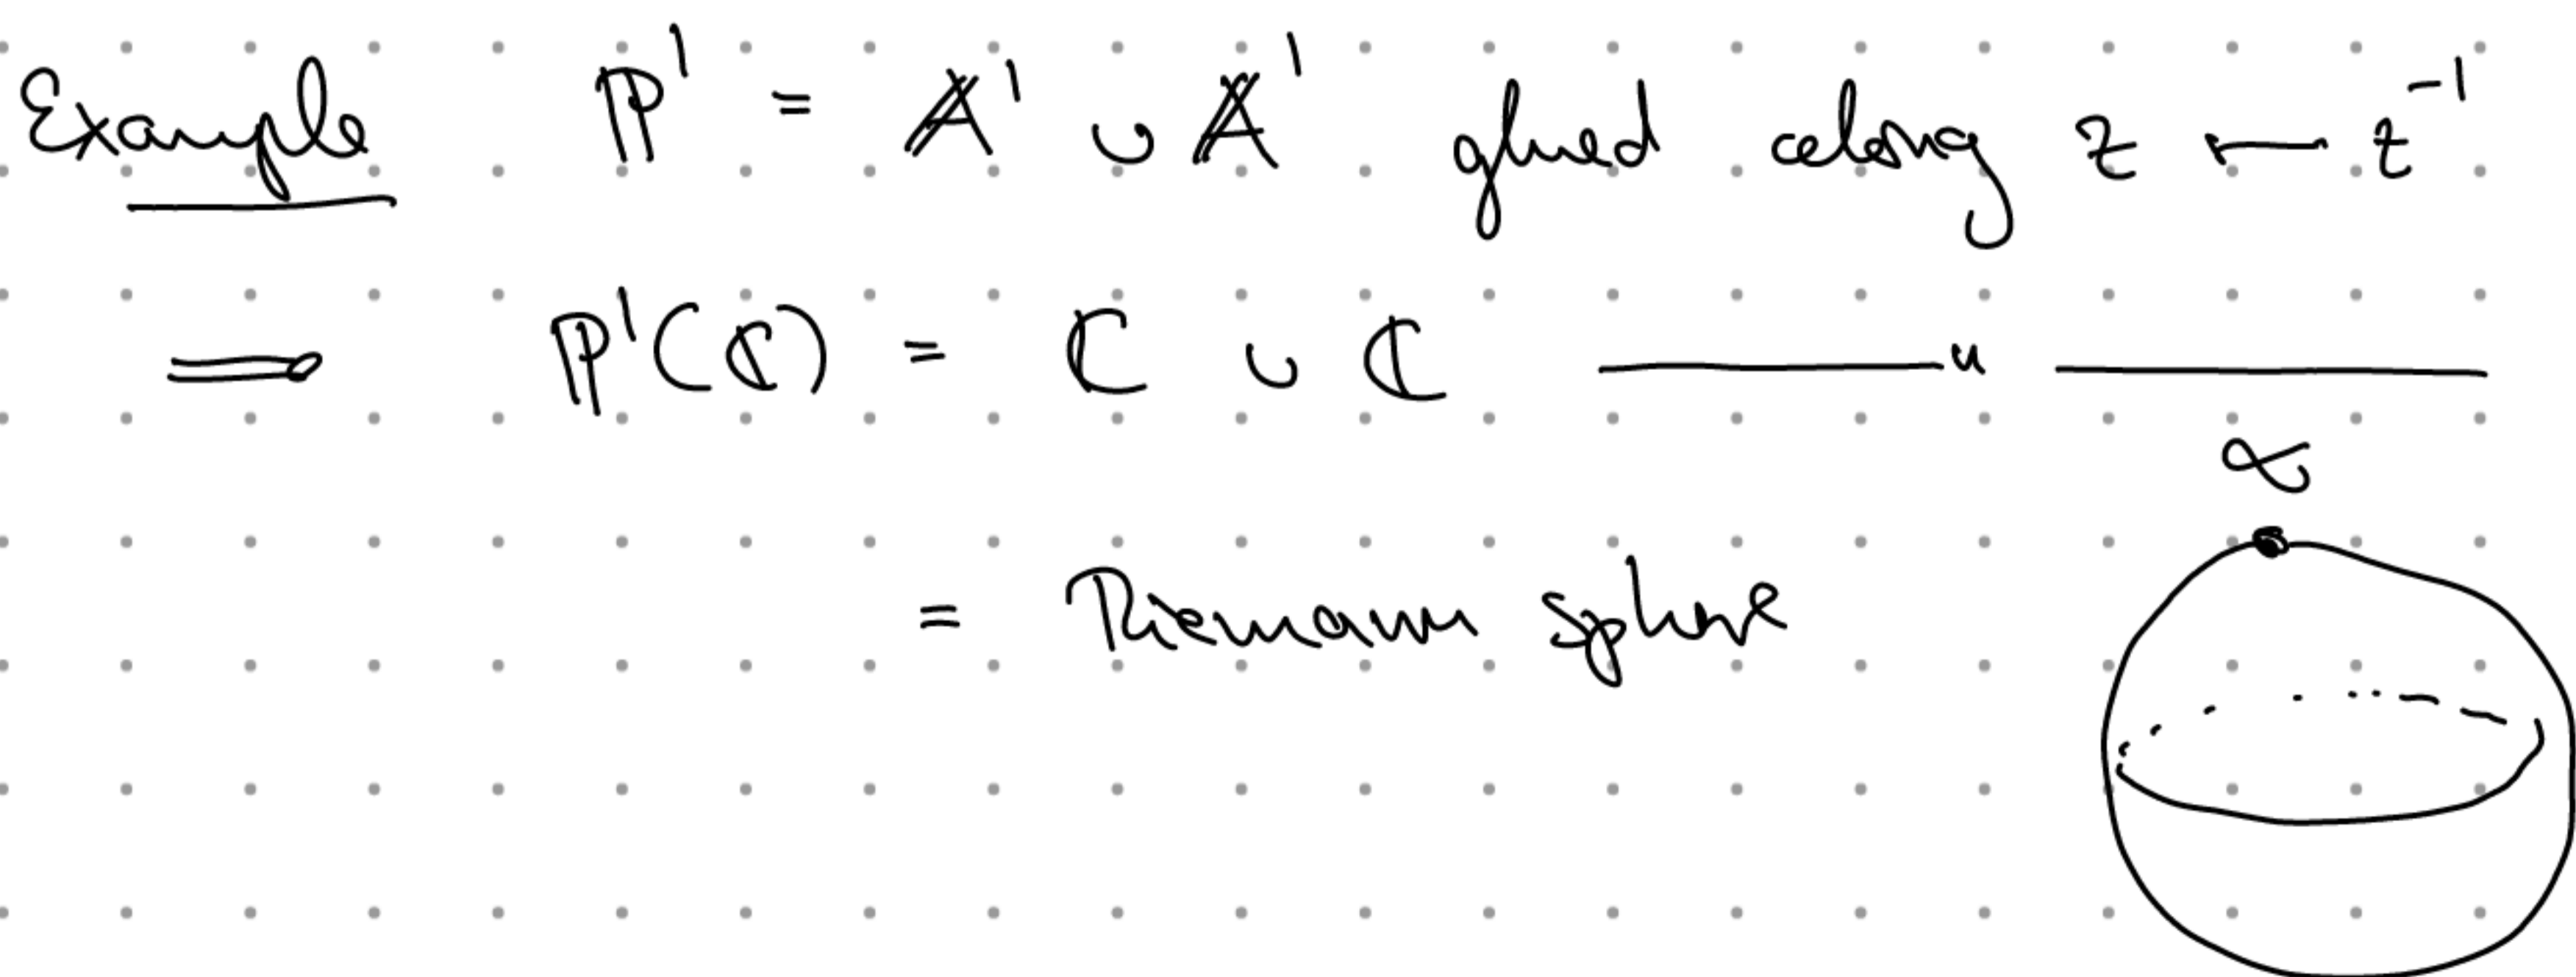 Example ℙ¹ = 𝔸¹ ∪ 𝔸¹ glued along z ⟵ z⁻¹
⟹ ℙ¹(ℂ) = ℂ ∪ ℂ —— " ——
∞
= Riemann sphere